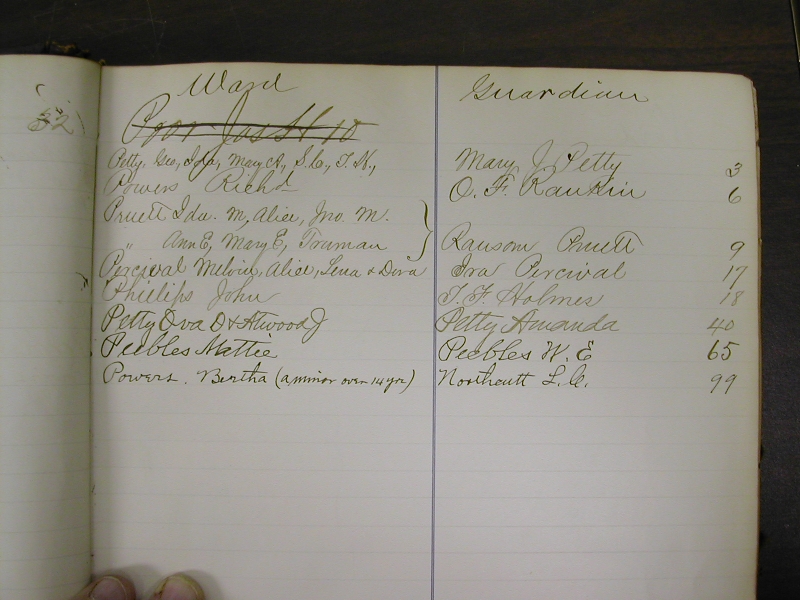 52
Ward Guardian
Poor Jas H 10
Petty, Geo, Ida, Mary A, S. C., T. H., Mary J Petty 3
Powers Richd O. F. Rankin 6
Pruett Ida. M, Alice, Jno. M.
" Ann E, Mary E, Truman Ransom Pruett 9
Percival Melvin, Alice, Lena & Dora Ira Percival 17
Phillips John T. F. Holmes 18
Petty Ova D & Atwood J Petty Amanda 40
Peebles Mattie Peebles W. E 65
Powers. Bertha (a minor over 14 yrs) Northcutt L. C. 99